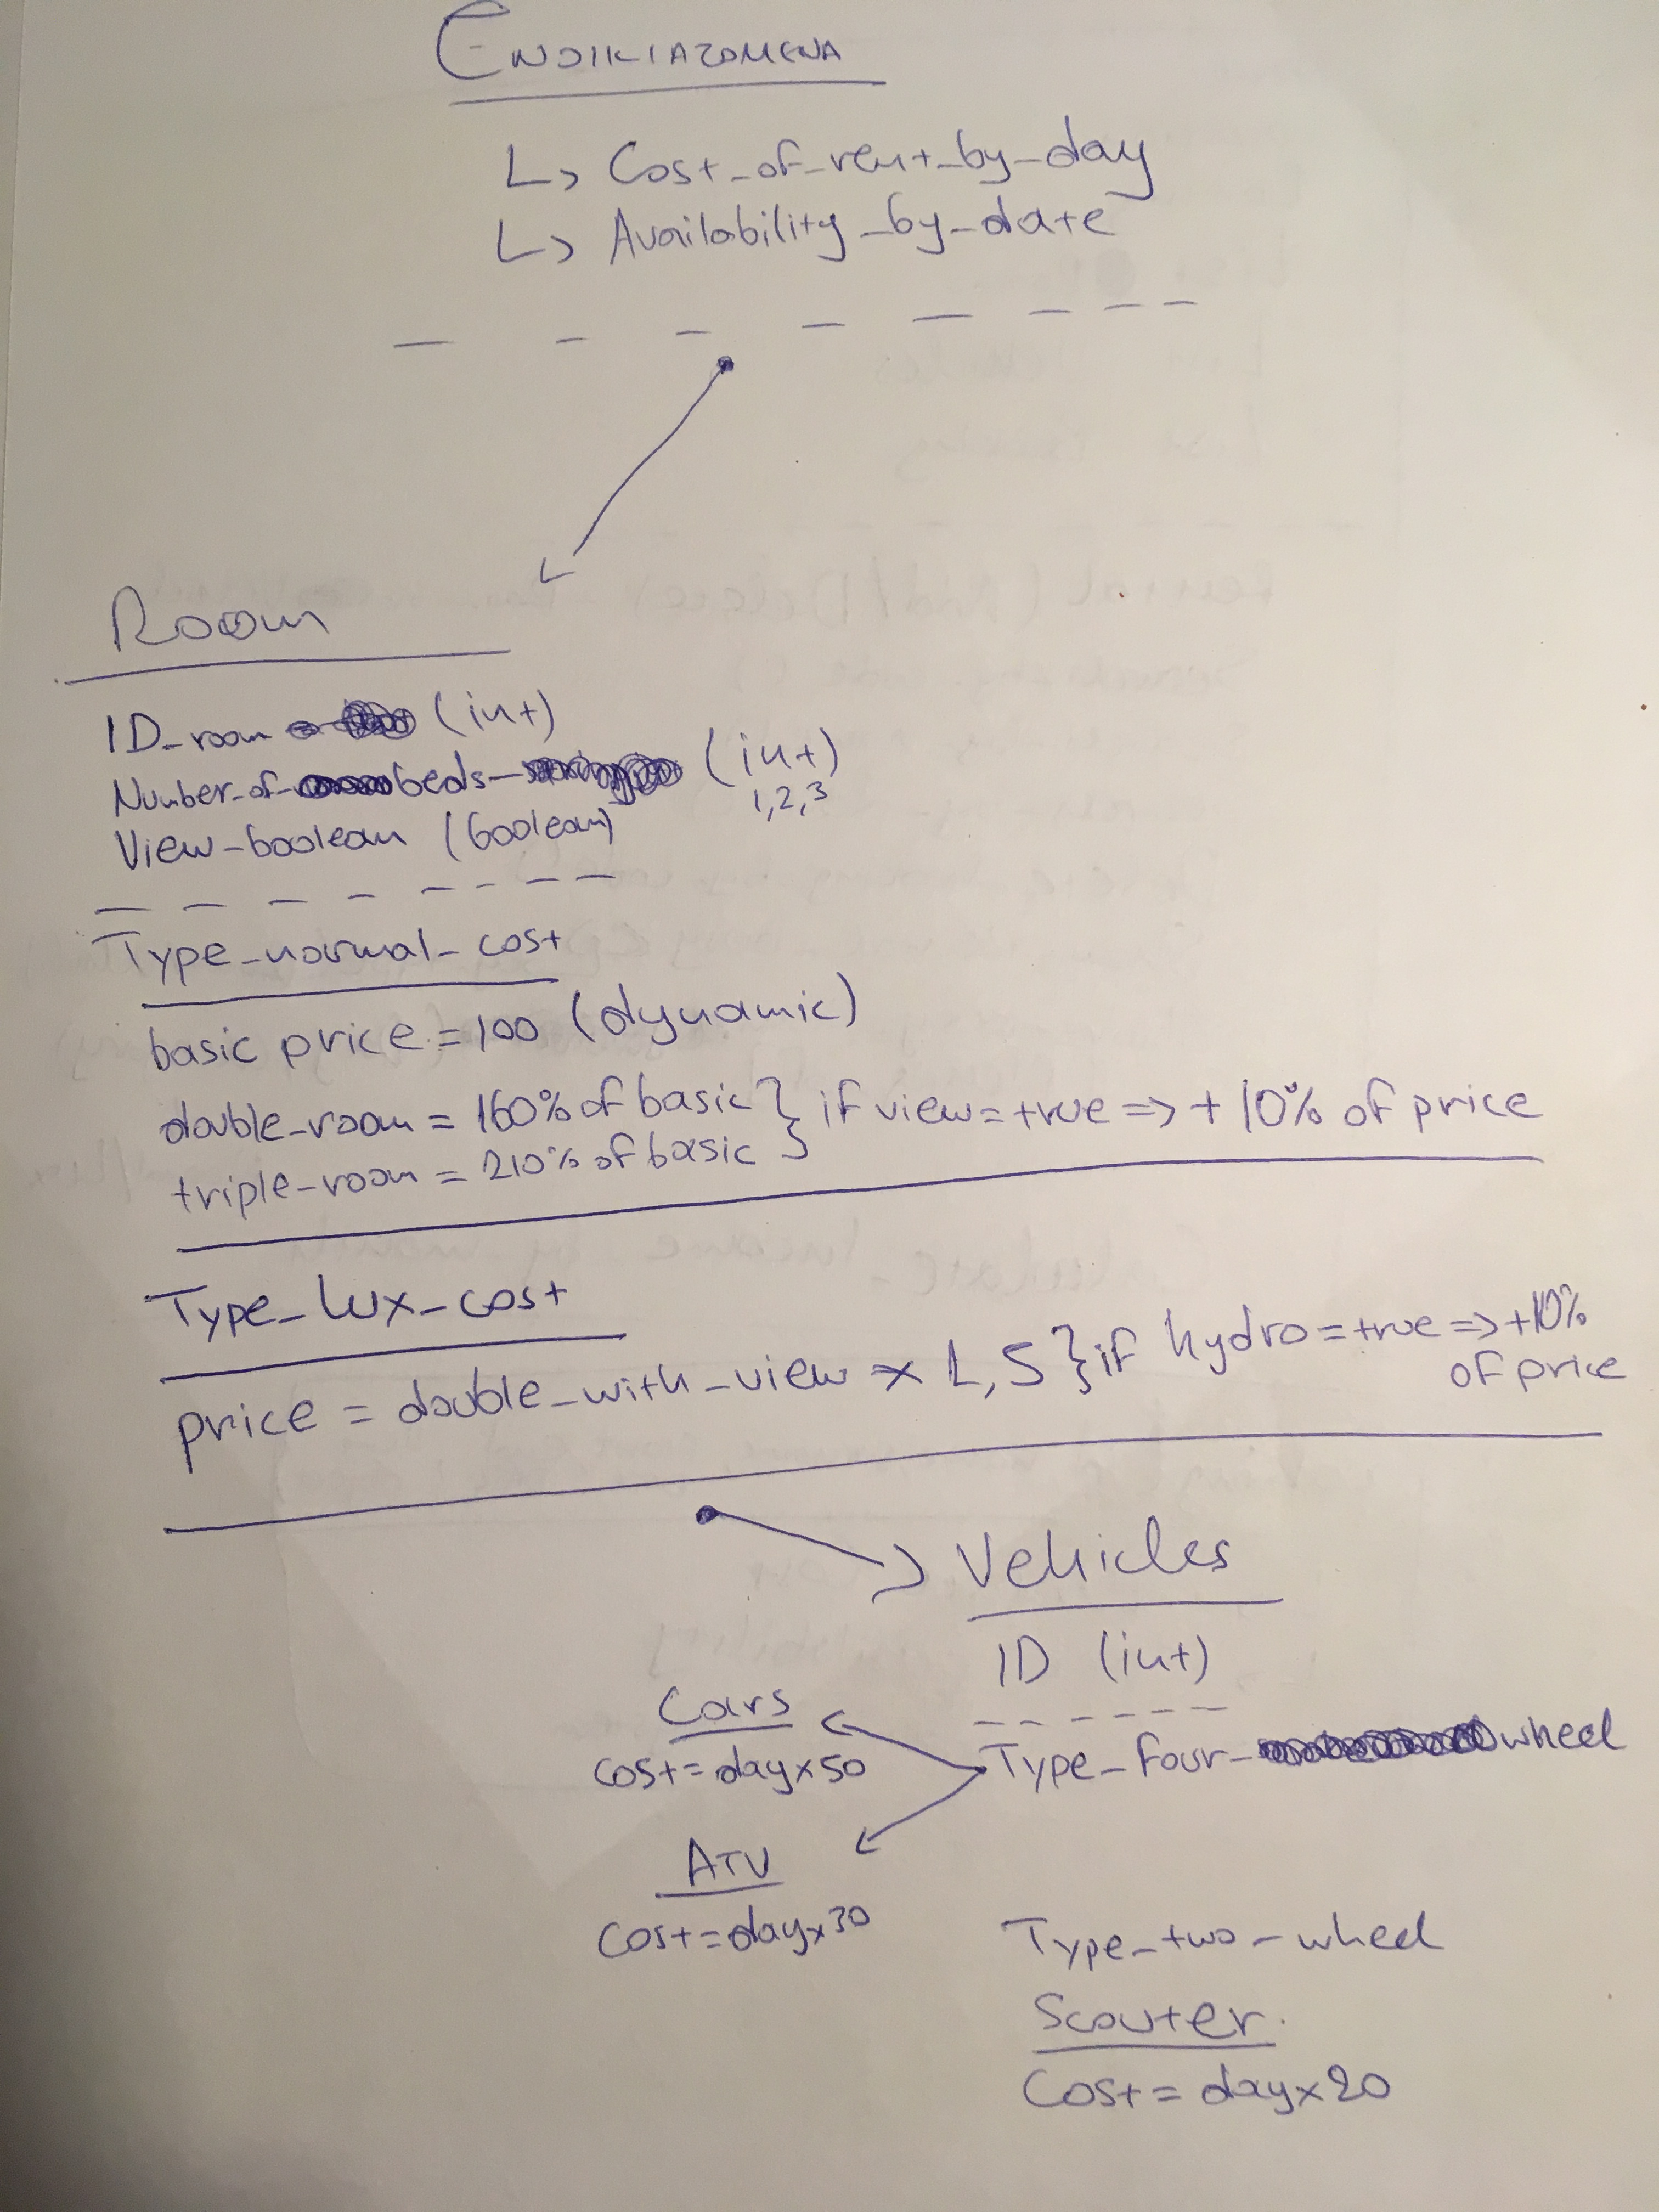 Ενοικιαζόμενα
↳ Cost_of_rent_by_day
↳ Availability_by_date
Room
ID_room (int)
Number_of_beds_ (int)
1,2,3
View_boolean (boolean)
Type_normal_cost
basic price = 100 (dynamic)
double_room = 160% of basic } if view = true => + 10% of price
triple_room = 210% of basic }
Type_lux_cost
price = double_with_view x 1,5 } if hydro = true => +10%
of price
Vehicles
ID (int)
Type_four_wheel
Cars
cost = day x 50
ATV
Cost = day x 30
Type_two_wheel
Scouter
Cost = day x 20